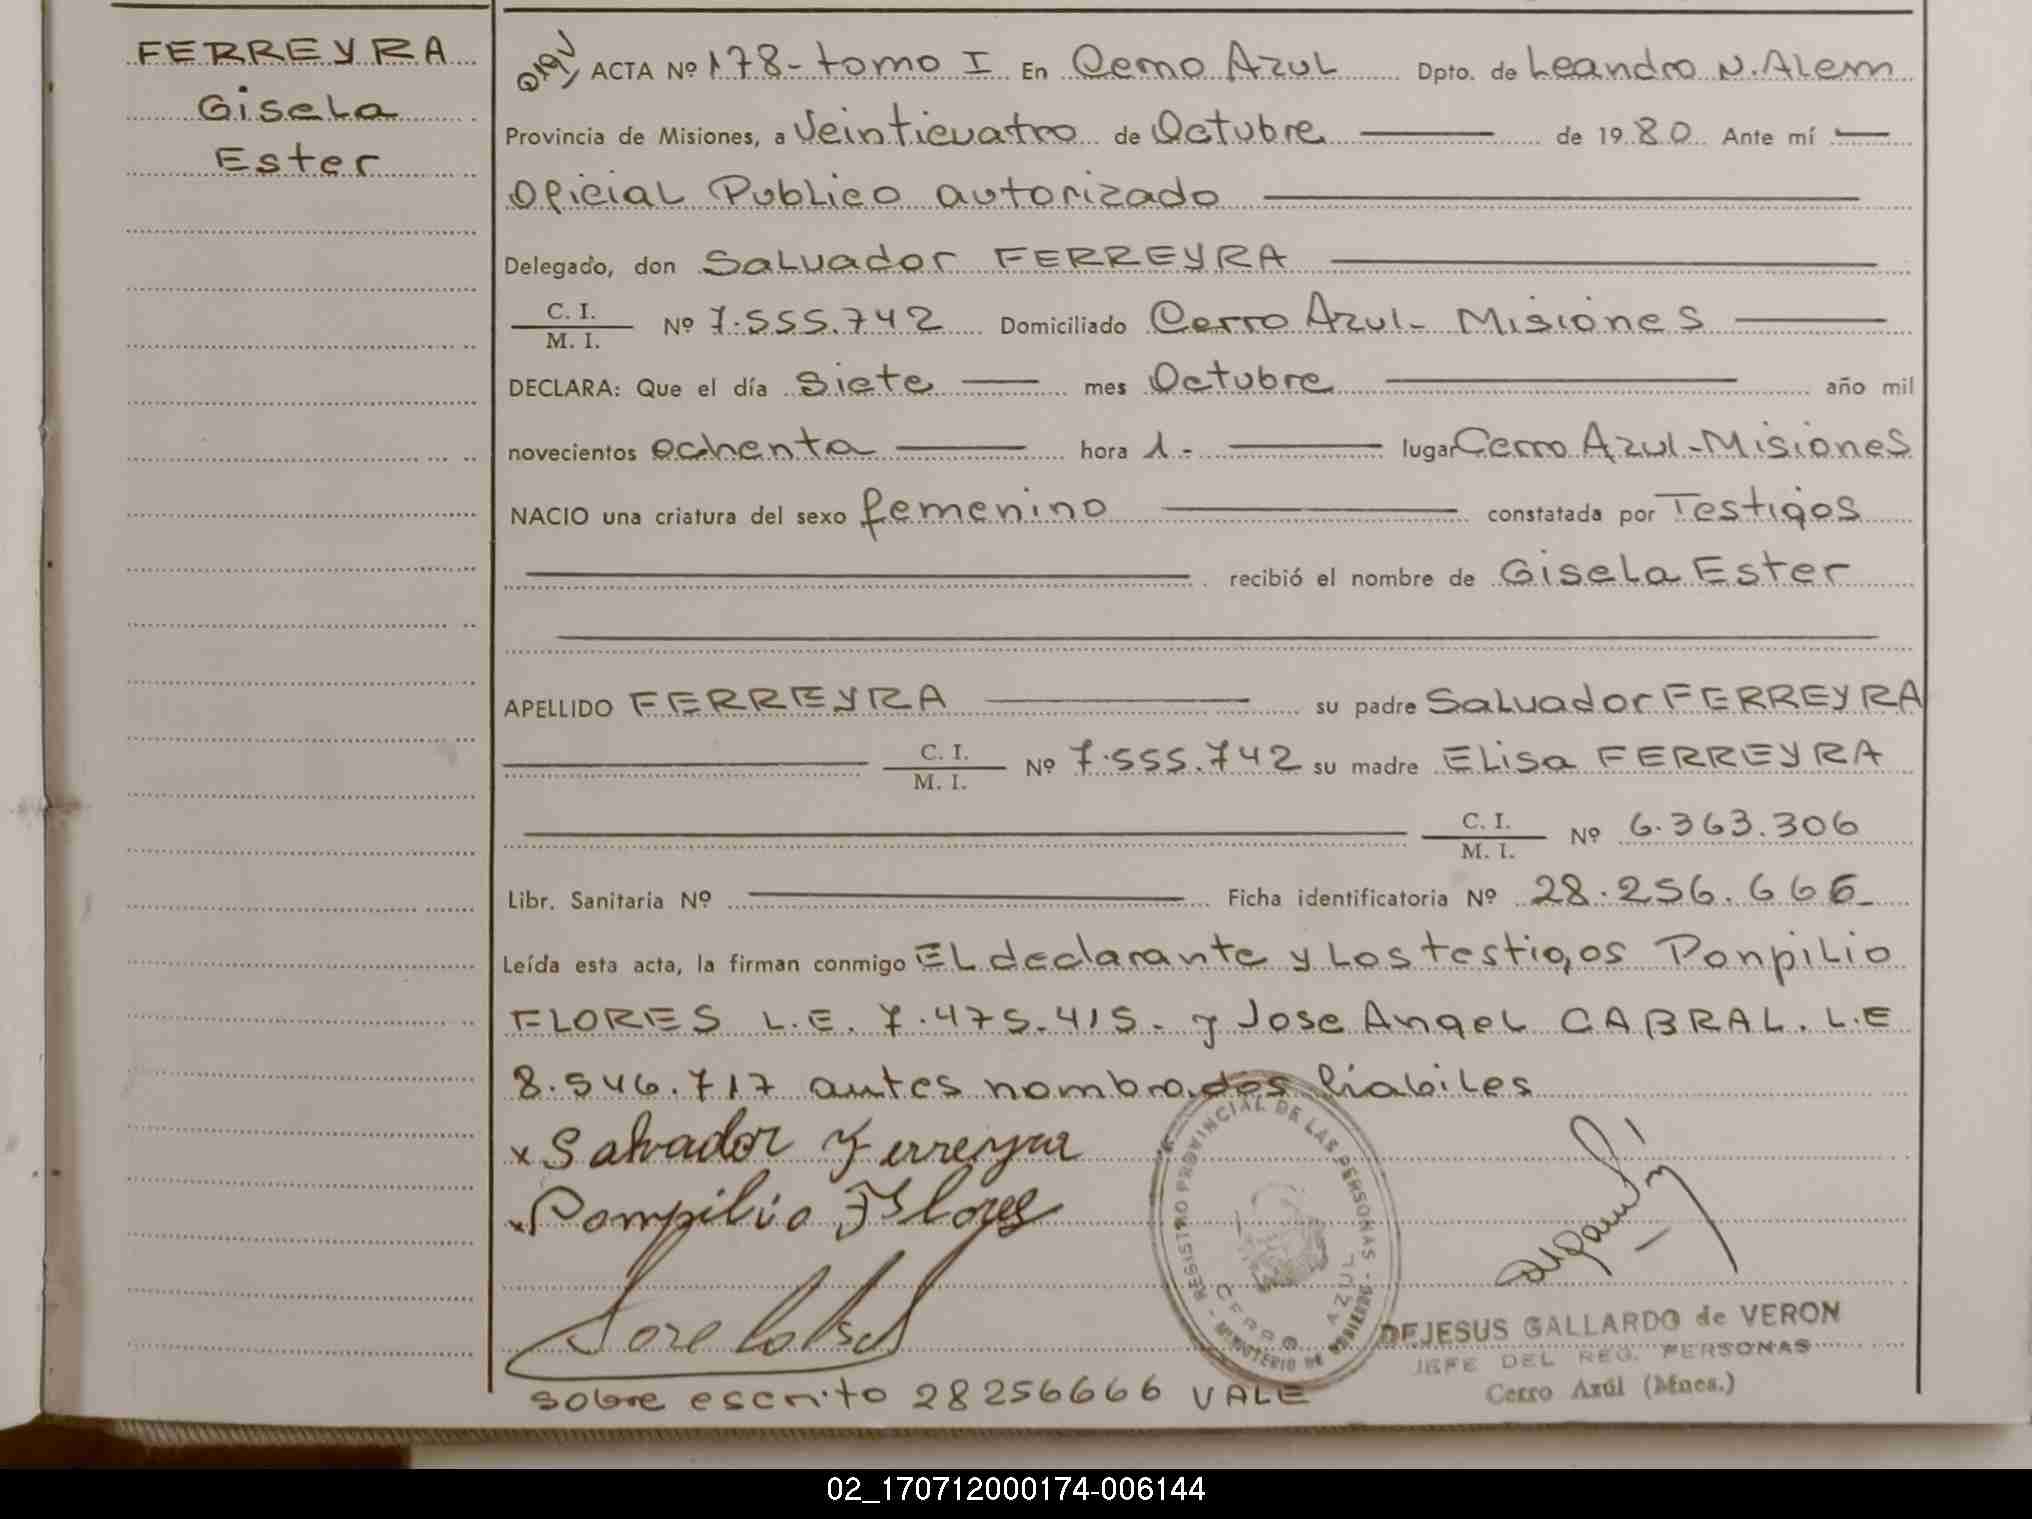 FERREYRA
Gisela
Ester
ACTA Nº 178- tomo I En Cerro Azul Dpto. de Leandro N. Alem
Provincia de Misiones, a Veinticuatro de Octubre de 1980 Ante mí
Oficial Publico autorizado
Delegado, don Salvador FERREYRA
C. I.
M. I.
Nº 7.555.742 Domiciliado Cerro Azul- Misiones
DECLARA: Que el día siete mes Octubre año mil
novecientos ochenta hora 1.- lugar Cerro Azul-Misiones
NACIO una criatura del sexo femenino constatada por Testigos
recibió el nombre de Gisela Ester
APELLIDO FERREYRA su padre Salvador FERREYRA
C. I.
M. I.
Nº 7.555.742 su madre Elisa FERREYRA
C. I.
M. I.
Nº 6.363.306
Libr. Sanitaria Nº Ficha identificatoria Nº 28.256.666-
Leída esta acta, la firman conmigo El declarante y los testigos Ponpilio
FLORES L.E. 7.475.415. y Jose Angel CABRAL. L.E
8.546.717 antes nombrados habiles
x Salvador Ferreyra
x Pompilio Flores
REGISTRO PROVINCIAL DE LAS PERSONAS - MINISTERIO DE GOBIERNO -
CERRO AZUL
DEJESUS GALLARDO de VERON
JEFE DEL REG. PERSONAS
Cerro Azúl (Mnes.)
sobre escrito 28256666 VALE
02_170712000174-006144